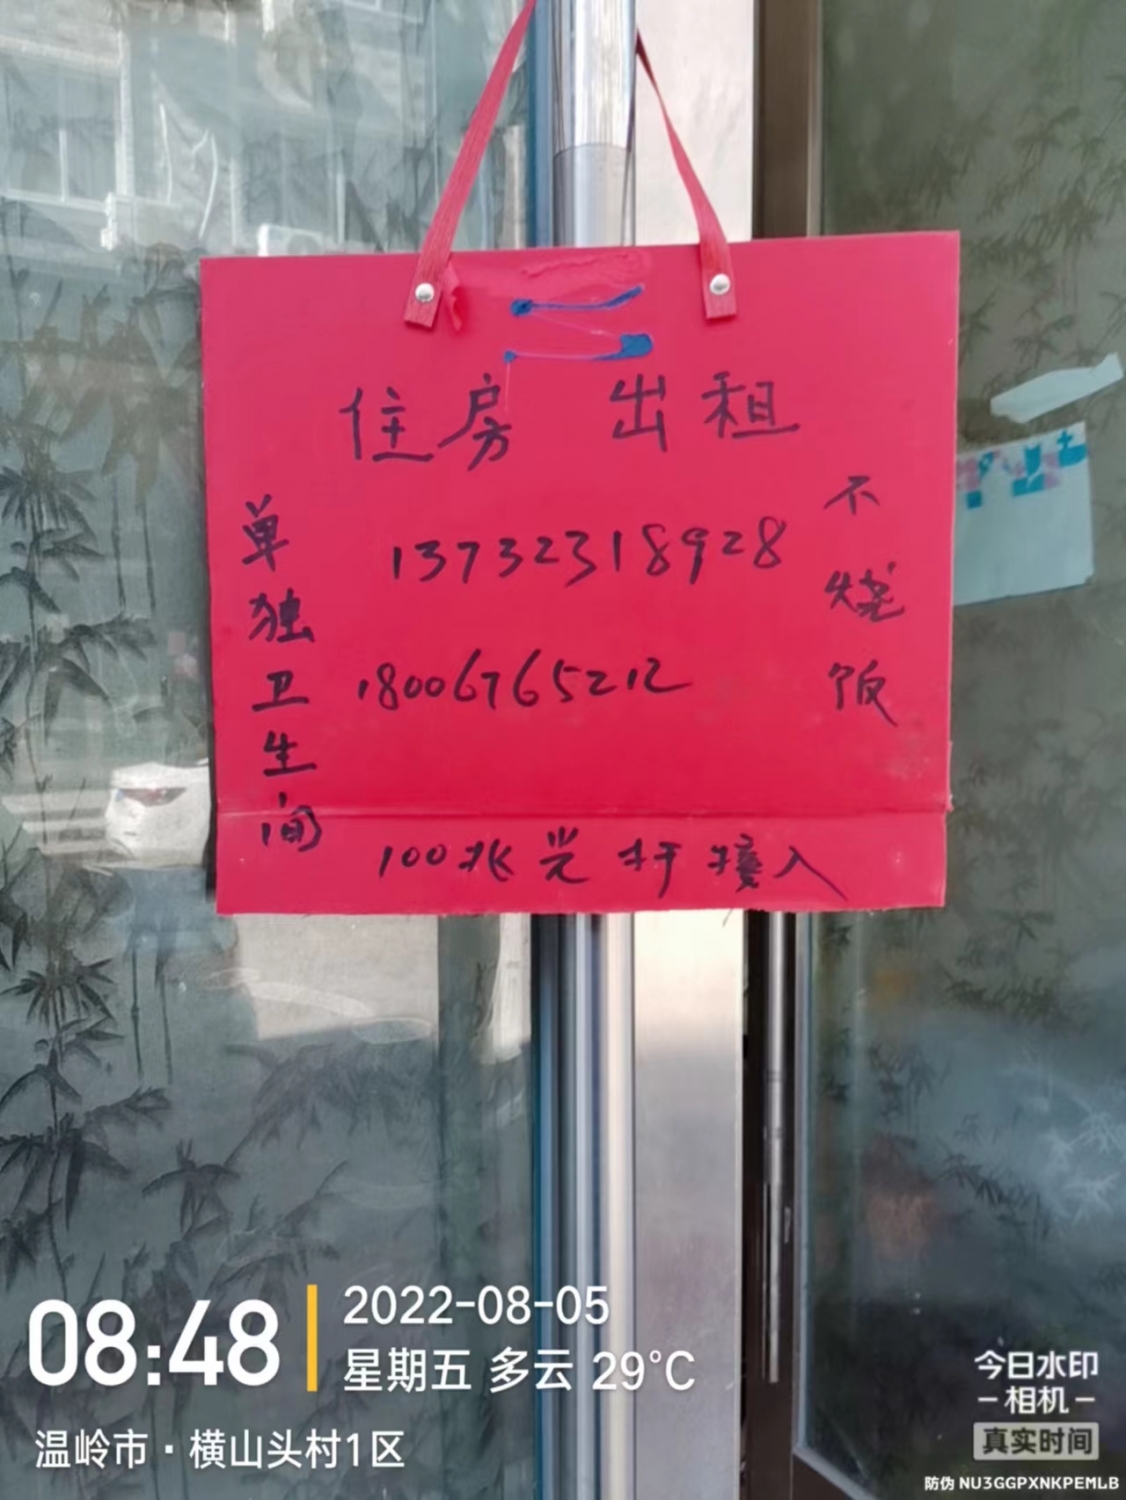 住房 出租
单独卫生间
13732318928
不烧饭
18006765212
100兆光纤接入
08:48
2022-08-05
星期五 多云 29°C
温岭市·横山头村1区
今日水印
-相机-
真实时间
防伪 NU3GGPXNKPEMLB